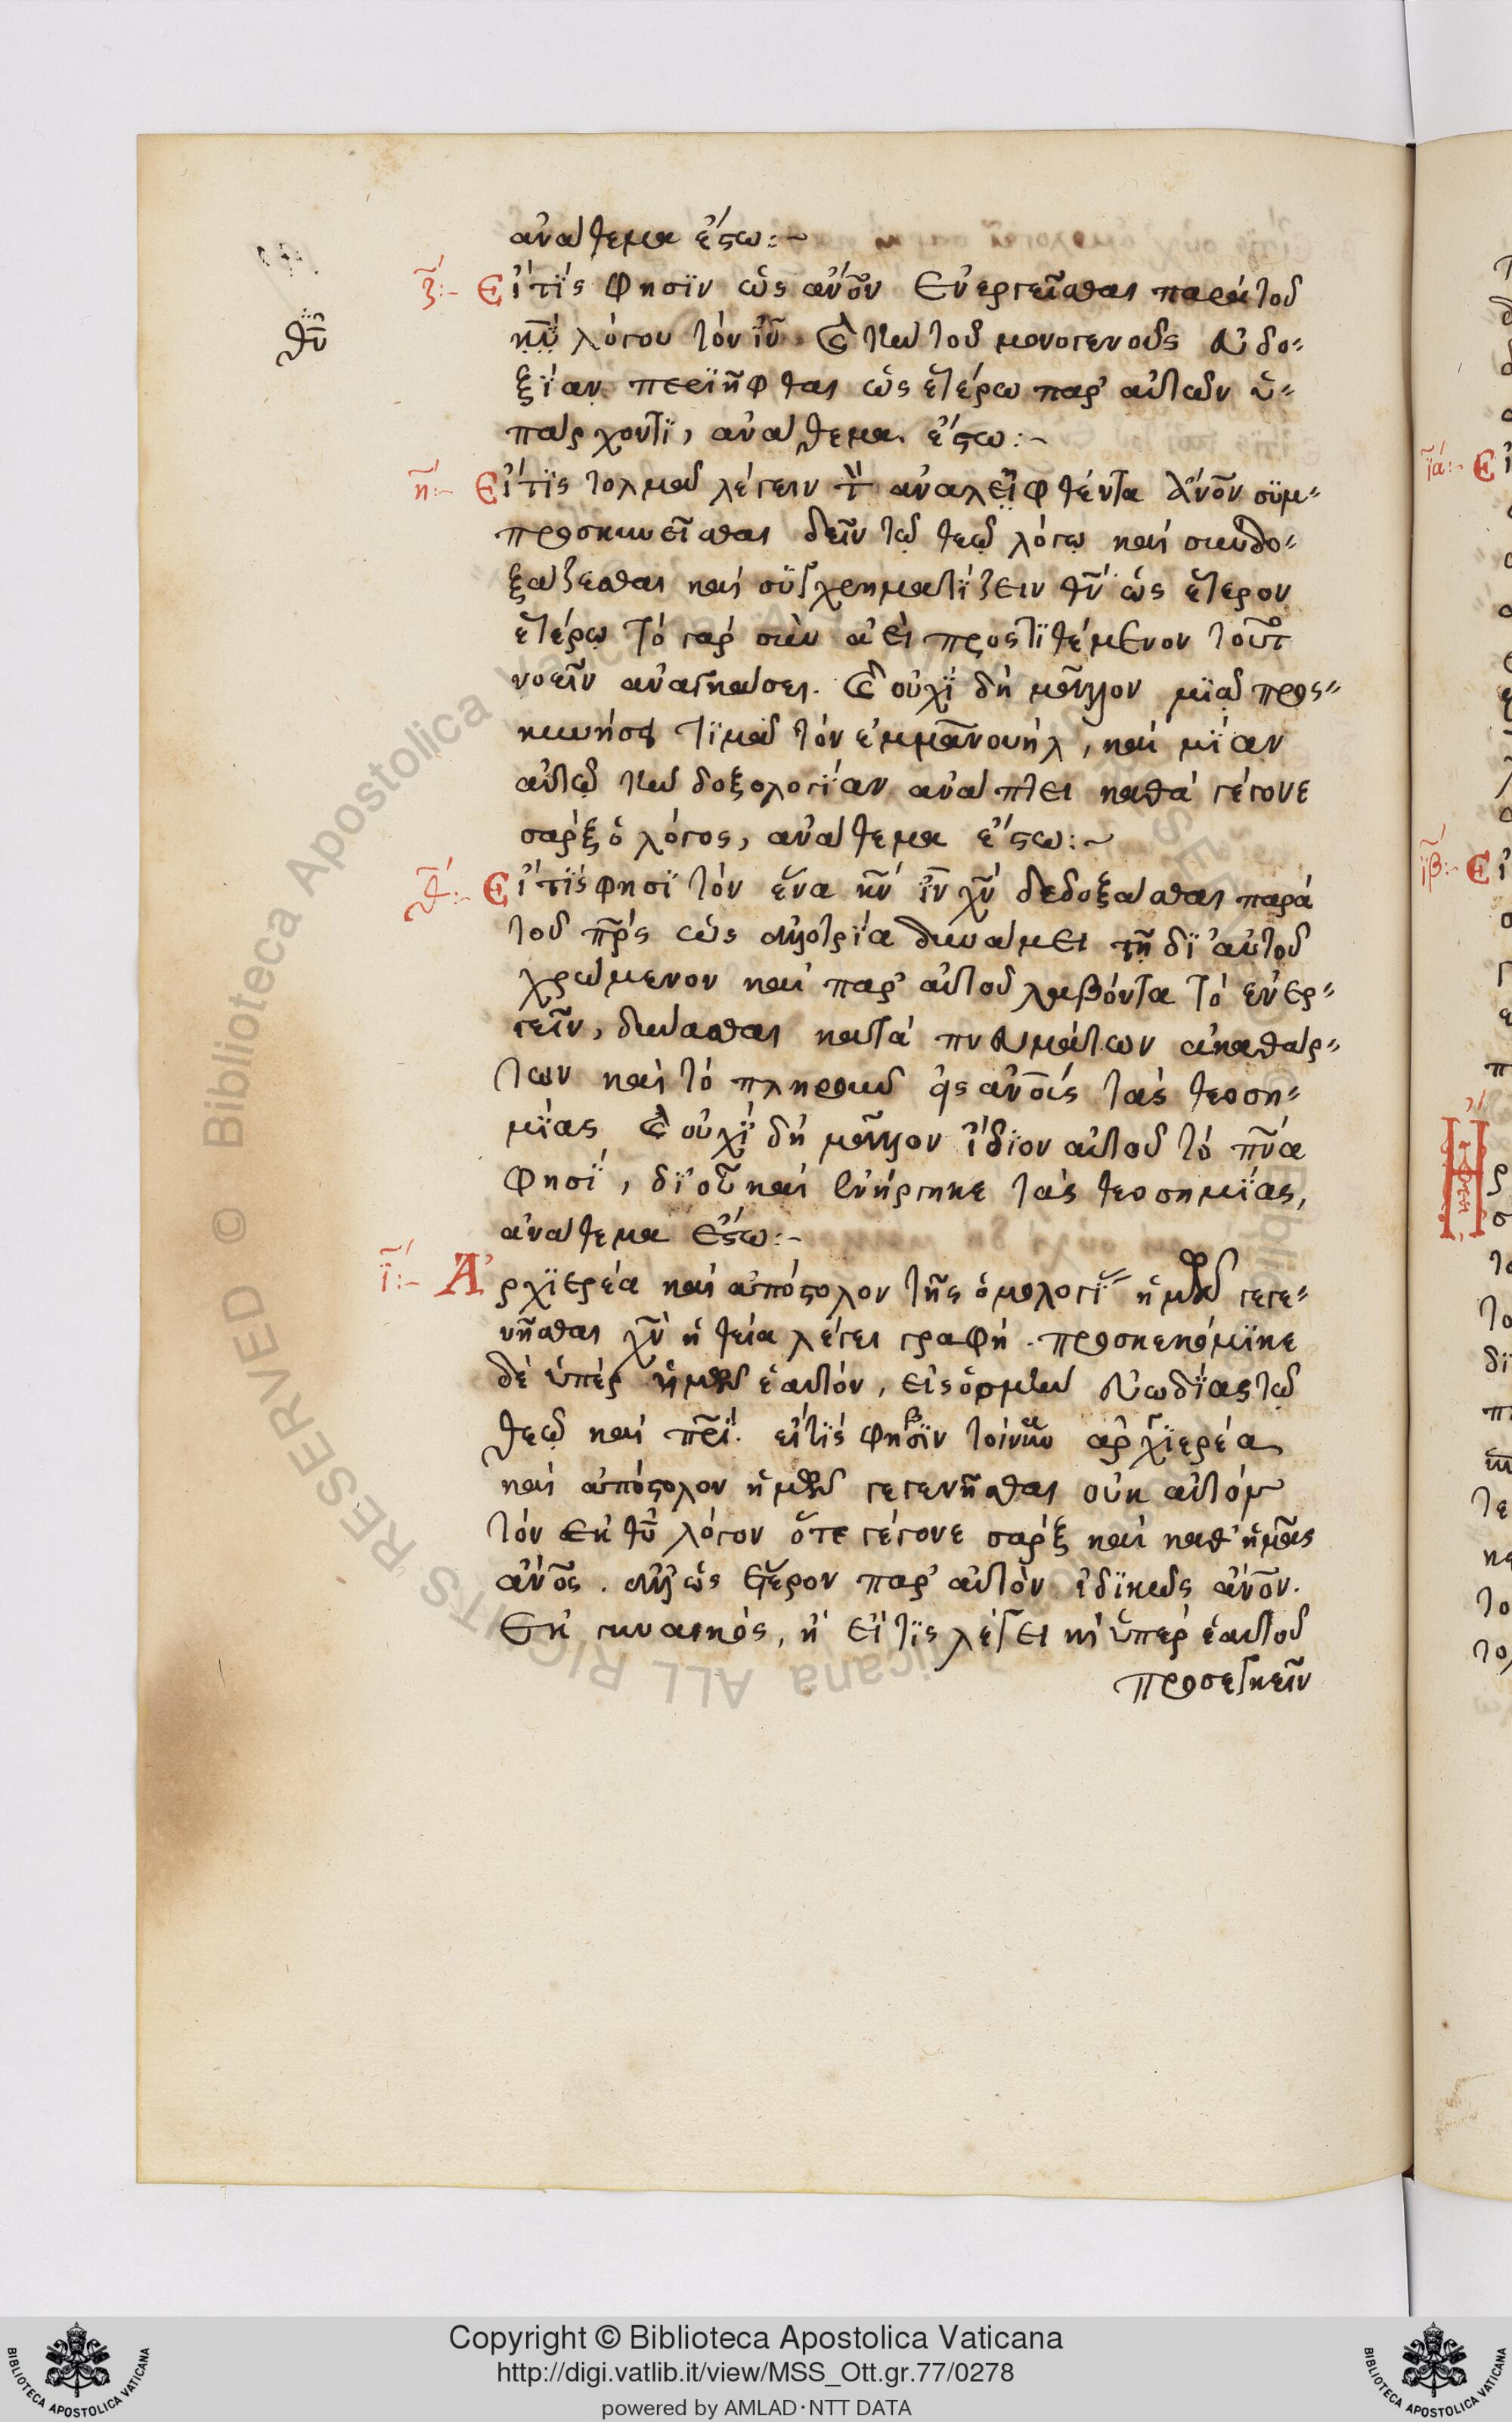 ἀνάθεμα ἔστω:~
ζ̄:- Εἴτίς φησϊν ὡς ἀν̄ον ἐνεργεῖσθαι παρὰ τοῦ
κ̄υ λόγου τὸν ῑν. καὶ τὴν τοῦ μονογενοῦς εὐδο-
ξΐαν περϊῆφθαι ὡς ἑτέρω παρ' αὐτὸν ὑ-
πάρχοντϊ, ἀνάθεμα ἔστω:~
θ̄υ
η̄:- Εἴτϊς τολμᾶ λέγειν τὸν ἀναλειφθέντα ἄν̄ον συμ-
προσκυνεῖσθαι δεῖν τῷ θεῷ λόγῳ καὶ συνδο-
ξάζεσθαι καὶ συγχρηματΐζειν θ̄ν ὡς ἕτερον
ἑτέρῳ τὸ γὰρ σὺν ἀεὶ προστϊθέμενον τοῦτο
νοεῖν ἀναγκάσει. καὶ οὐχϊ δὴ μᾶλλον μϊᾷ προσ-
κυνήσει τϊμᾶ τὸν ἐμμανουήλ, καὶ μΐαν
αὐτῷ τὴν δοξολογΐαν ἀνάπτει καθὰ γέγονε
σὰρξ ὁ λόγος, ἀνάθεμα ἔστω:~
θ̄:- Εἴτϊς φησϊ τὸν ἕνα κ̄ν ῑν χ̄ν δεδοξάσθαι παρὰ
τοῦ π̄ρς ὡς ἀλλοτρΐα δυνάμει τῇ δϊ' αὐτοῦ
χρώμενον καὶ παρ' αὐτοῦ λαβόντα τὸ ἐνερ-
γεῖν, δύνασθαι κατὰ πνευμάτων ἀκαθάρ-
των καὶ τὸ πληροῦν εἰς ἀν̄οις τὰς θεοση-
μΐας καὶ οὐχϊ δὴ μᾶλλον ἴδϊον αὐτοῦ τὸ π̄να
φησϊ, δϊ' οὗ καὶ ἐνήργηκε τὰς θεοσημΐας,
ἀνάθεμα ἔστω:-
ῑ:- Ἀρχϊερέα καὶ ἀπόστολον τῆς ὁμολογΐας ἡμῶν γεγε-
νῆσθαι χ̄ν ἡ θεία λέγει γραφή. προσκεκόμϊκε
δὲ ὑπὲρ ἡμῶν ἑαυτόν, εἰς ὀσμὴν εὐωδΐας τῷ
θεῷ καὶ π̄ρΐ. εἴτϊς φησϊν τοίνυν ἀρχϊερέα
καὶ ἀπόστολον ἡμῶν γεγενῆσθαι οὐκ αὐτὸν
τὸν ἐκ θ̄υ λόγον ὅτε γέγονε σὰρξ καὶ καθ' ἡμᾶς
ἄν̄ος. ἀλλ' ὡς ἕτερον παρ' αὐτὸν ἰδϊκῶς ἄν̄ον.
ἐκ γυναικός, ἢ εἴ τϊς λέγει καὶ ὑπὲρ ἑαυτοῦ
προσεγκεῖν
ῑα:- Εἰ
ῑβ:- Εἰ
Biblioteca Apostolica Vaticana ALL RIGHTS RESERVED ©
BIBLIOTECA APOSTOLICA VATICANA
Copyright © Biblioteca Apostolica Vaticana
http://digi.vatlib.it/view/MSS_Ott.gr.77/0278
powered by AMLAD·NTT DATA
BIBLIOTECA APOSTOLICA VATICANA